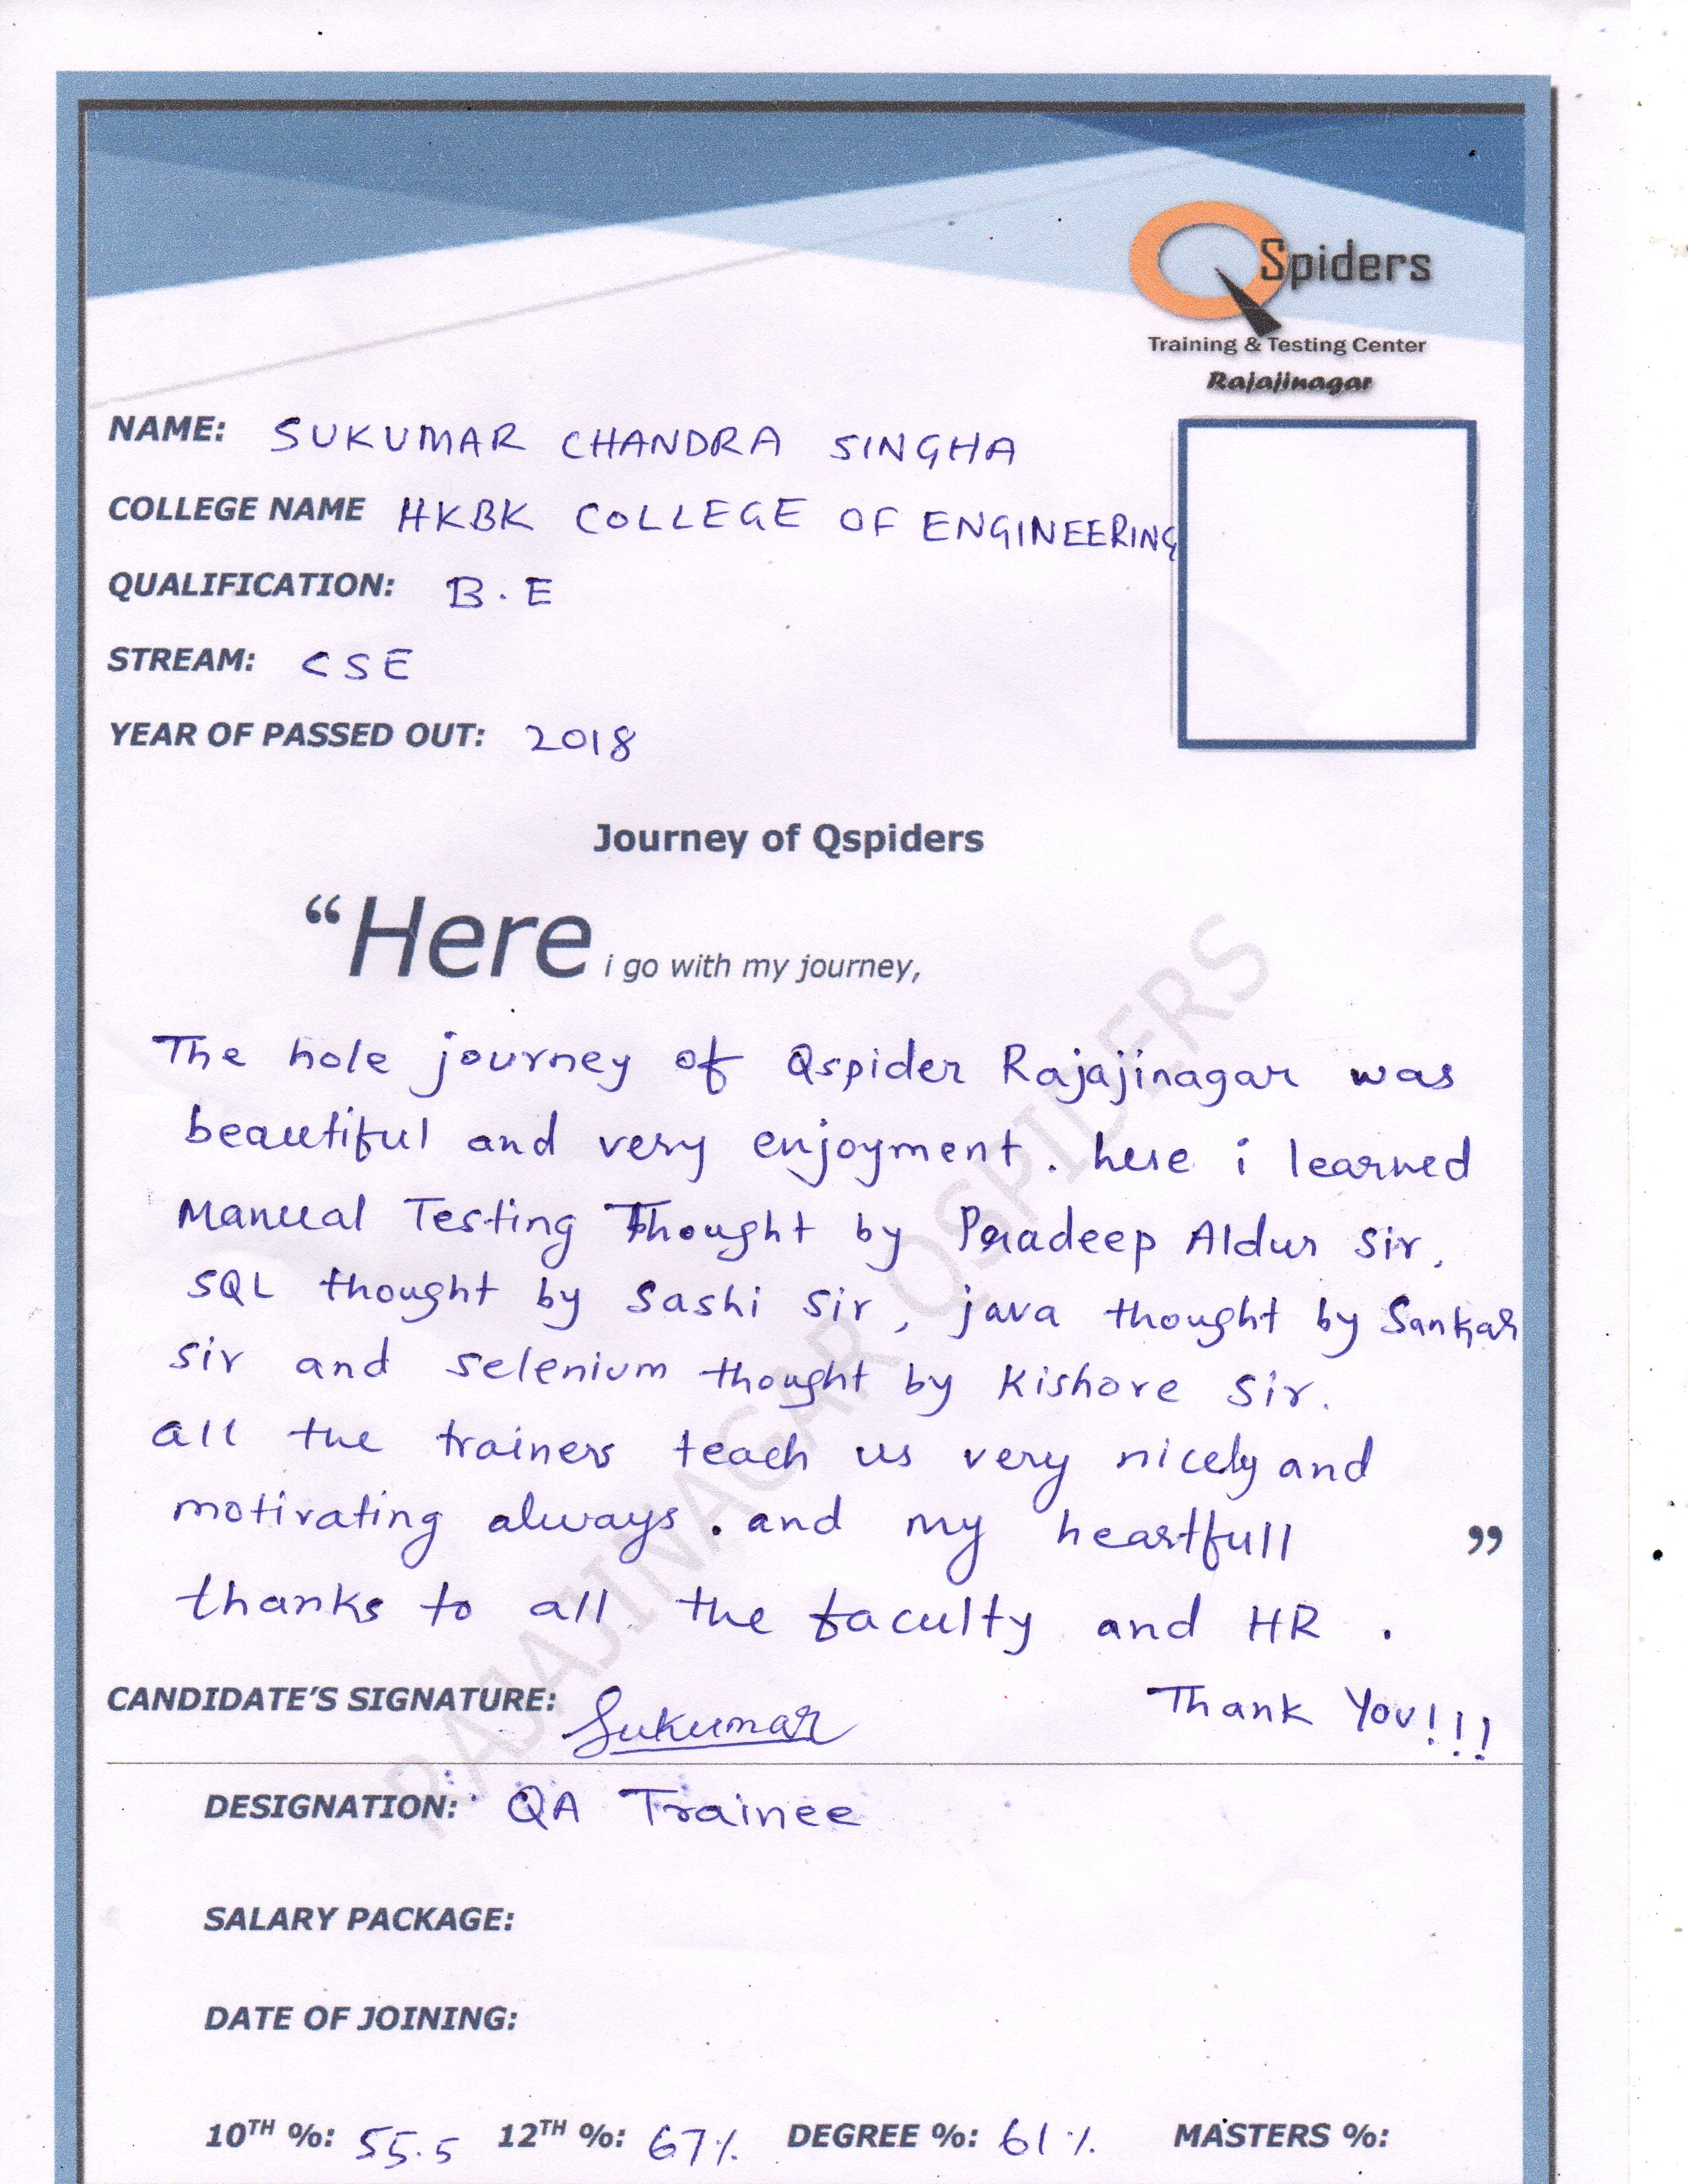 QSpiders
Training & Testing Center
Rajajinagar
NAME: SUKUMAR CHANDRA SINGHA
COLLEGE NAME HKBK COLLEGE OF ENGINEERING
QUALIFICATION: B.E
STREAM: CSE
YEAR OF PASSED OUT: 2018
Journey of Qspiders
“Here i go with my journey,
The hole journey of Qspider Rajajinagar was
beautiful and very enjoyment. here i learned
Manual Testing Thought by Pradeep Aldur Sir,
SQL thought by Sashi Sir, java thought by Sankar
Sir and selenium thought by Kishore Sir.
all the trainers teach us very nicely and
motivating always. and my heartfull ”
thanks to all the faculty and HR.
CANDIDATE’S SIGNATURE: Sukumar Thank You!!!
DESIGNATION: QA Trainee
SALARY PACKAGE:
DATE OF JOINING:
10TH %: 55.5 12TH %: 67% DEGREE %: 61% MASTERS %:
RAJAJINAGAR QSPIDERS